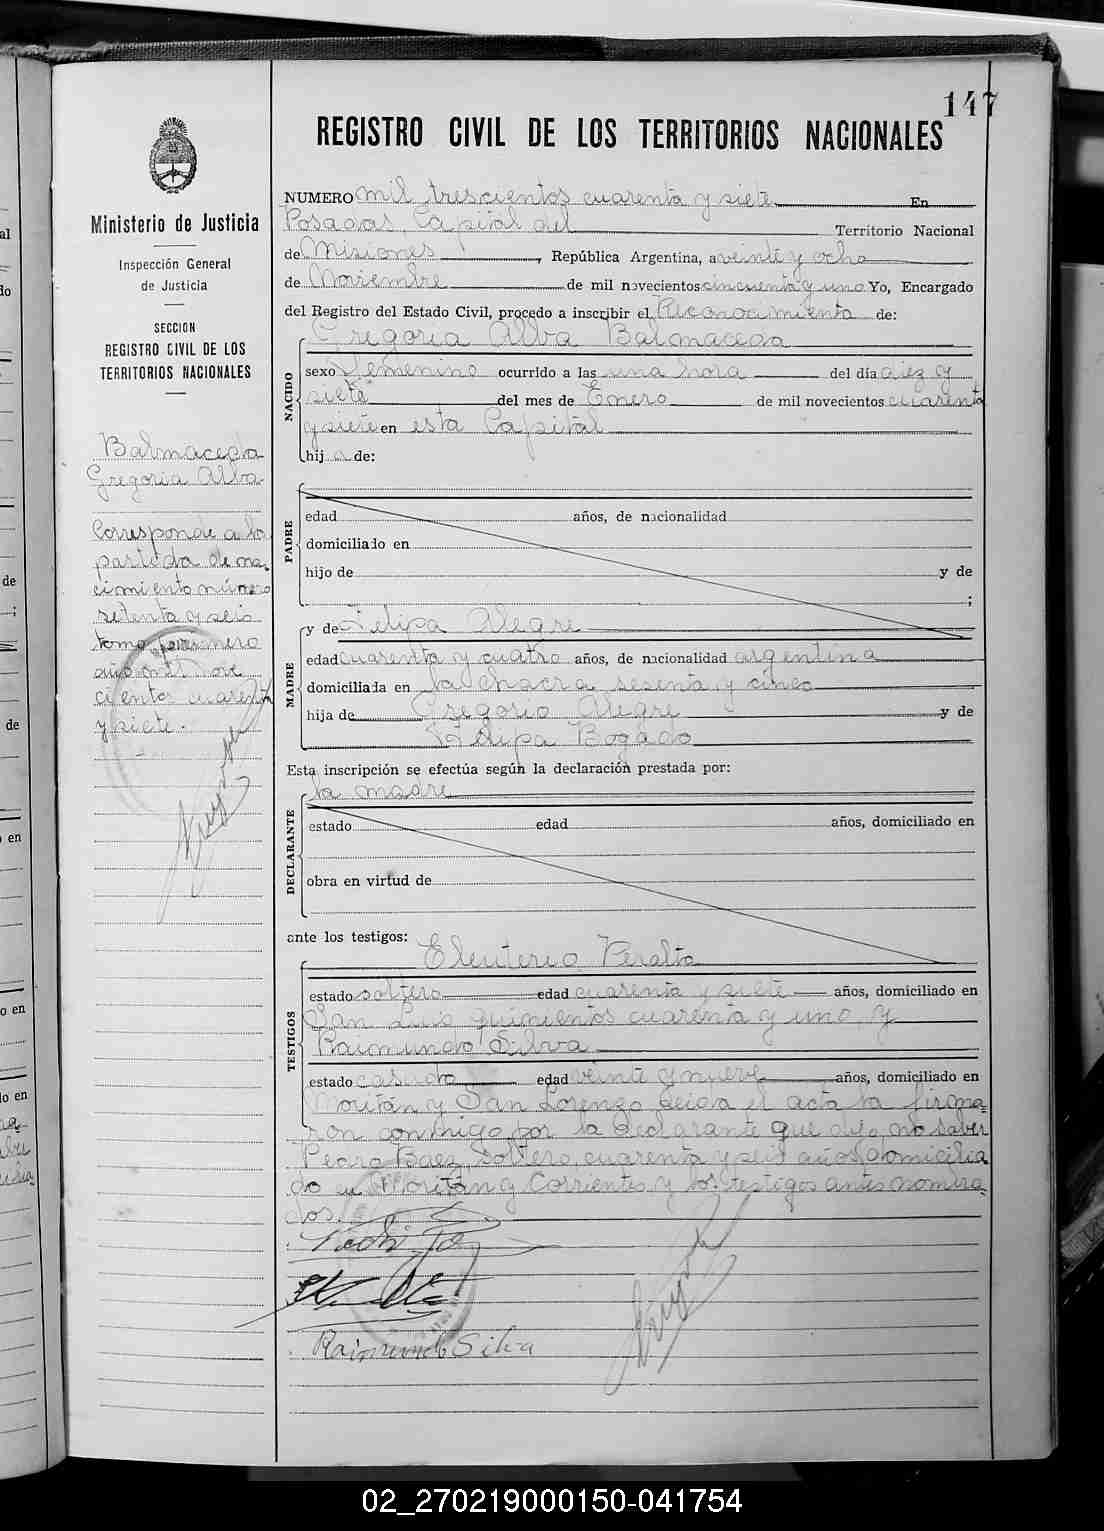 147
REGISTRO CIVIL DE LOS TERRITORIOS NACIONALES
Ministerio de Justicia
Inspección General
de Justicia
SECCION
REGISTRO CIVIL DE LOS
TERRITORIOS NACIONALES
Balmaceda
Gregoria Alba
Corresponde a la
partida de na-
cimiento número
setenta y seis
tomo primero
año mil nove
cientos cuarenta
y siete.
NUMERO mil trescientos cuarenta y siete En
Posadas, Capital del Territorio Nacional
de Misiones, República Argentina, a veinte y ocho
de Noviembre de mil novecientos cincuenta y uno Yo, Encargado
del Registro del Estado Civil, procedo a inscribir el Reconocimiento de:
Gregoria Alba Balmaceda
NACIDO
sexo Femenino ocurrido a las una hora del día diez y
siete del mes de Enero de mil novecientos cuarenta
y siete en esta Capital
hij a de:
PADRE
edad años, de nacionalidad
domiciliado en
hijo de y de
;
MADRE
y de Felipa Alegre
edad cuarenta y cuatro años, de nacionalidad argentina
domiciliada en la chacra sesenta y cinco
hija de Gregorio Alegre y de
Felipa Bogado
Esta inscripción se efectúa según la declaración prestada por:
la madre
DECLARANTE
estado edad años, domiciliado en
obra en virtud de
ante los testigos:
TESTIGOS
Eleuterio Peralta
estado soltero edad cuarenta y siete años, domiciliado en
San Luis quinientos cuarenta y uno, y
Raimundo Silva
estado casado edad veinte y nueve años, domiciliado en
Moritán y San Lorenzo leida el acta la firma-
ron conmigo por la declarante que dijo no saber
Pedro Baez, soltero, cuarenta y seis años, domicilia
do en Moritán y Corrientes y los testigos antes nombra-
dos.
Raimundo Silva
02_270219000150-041754